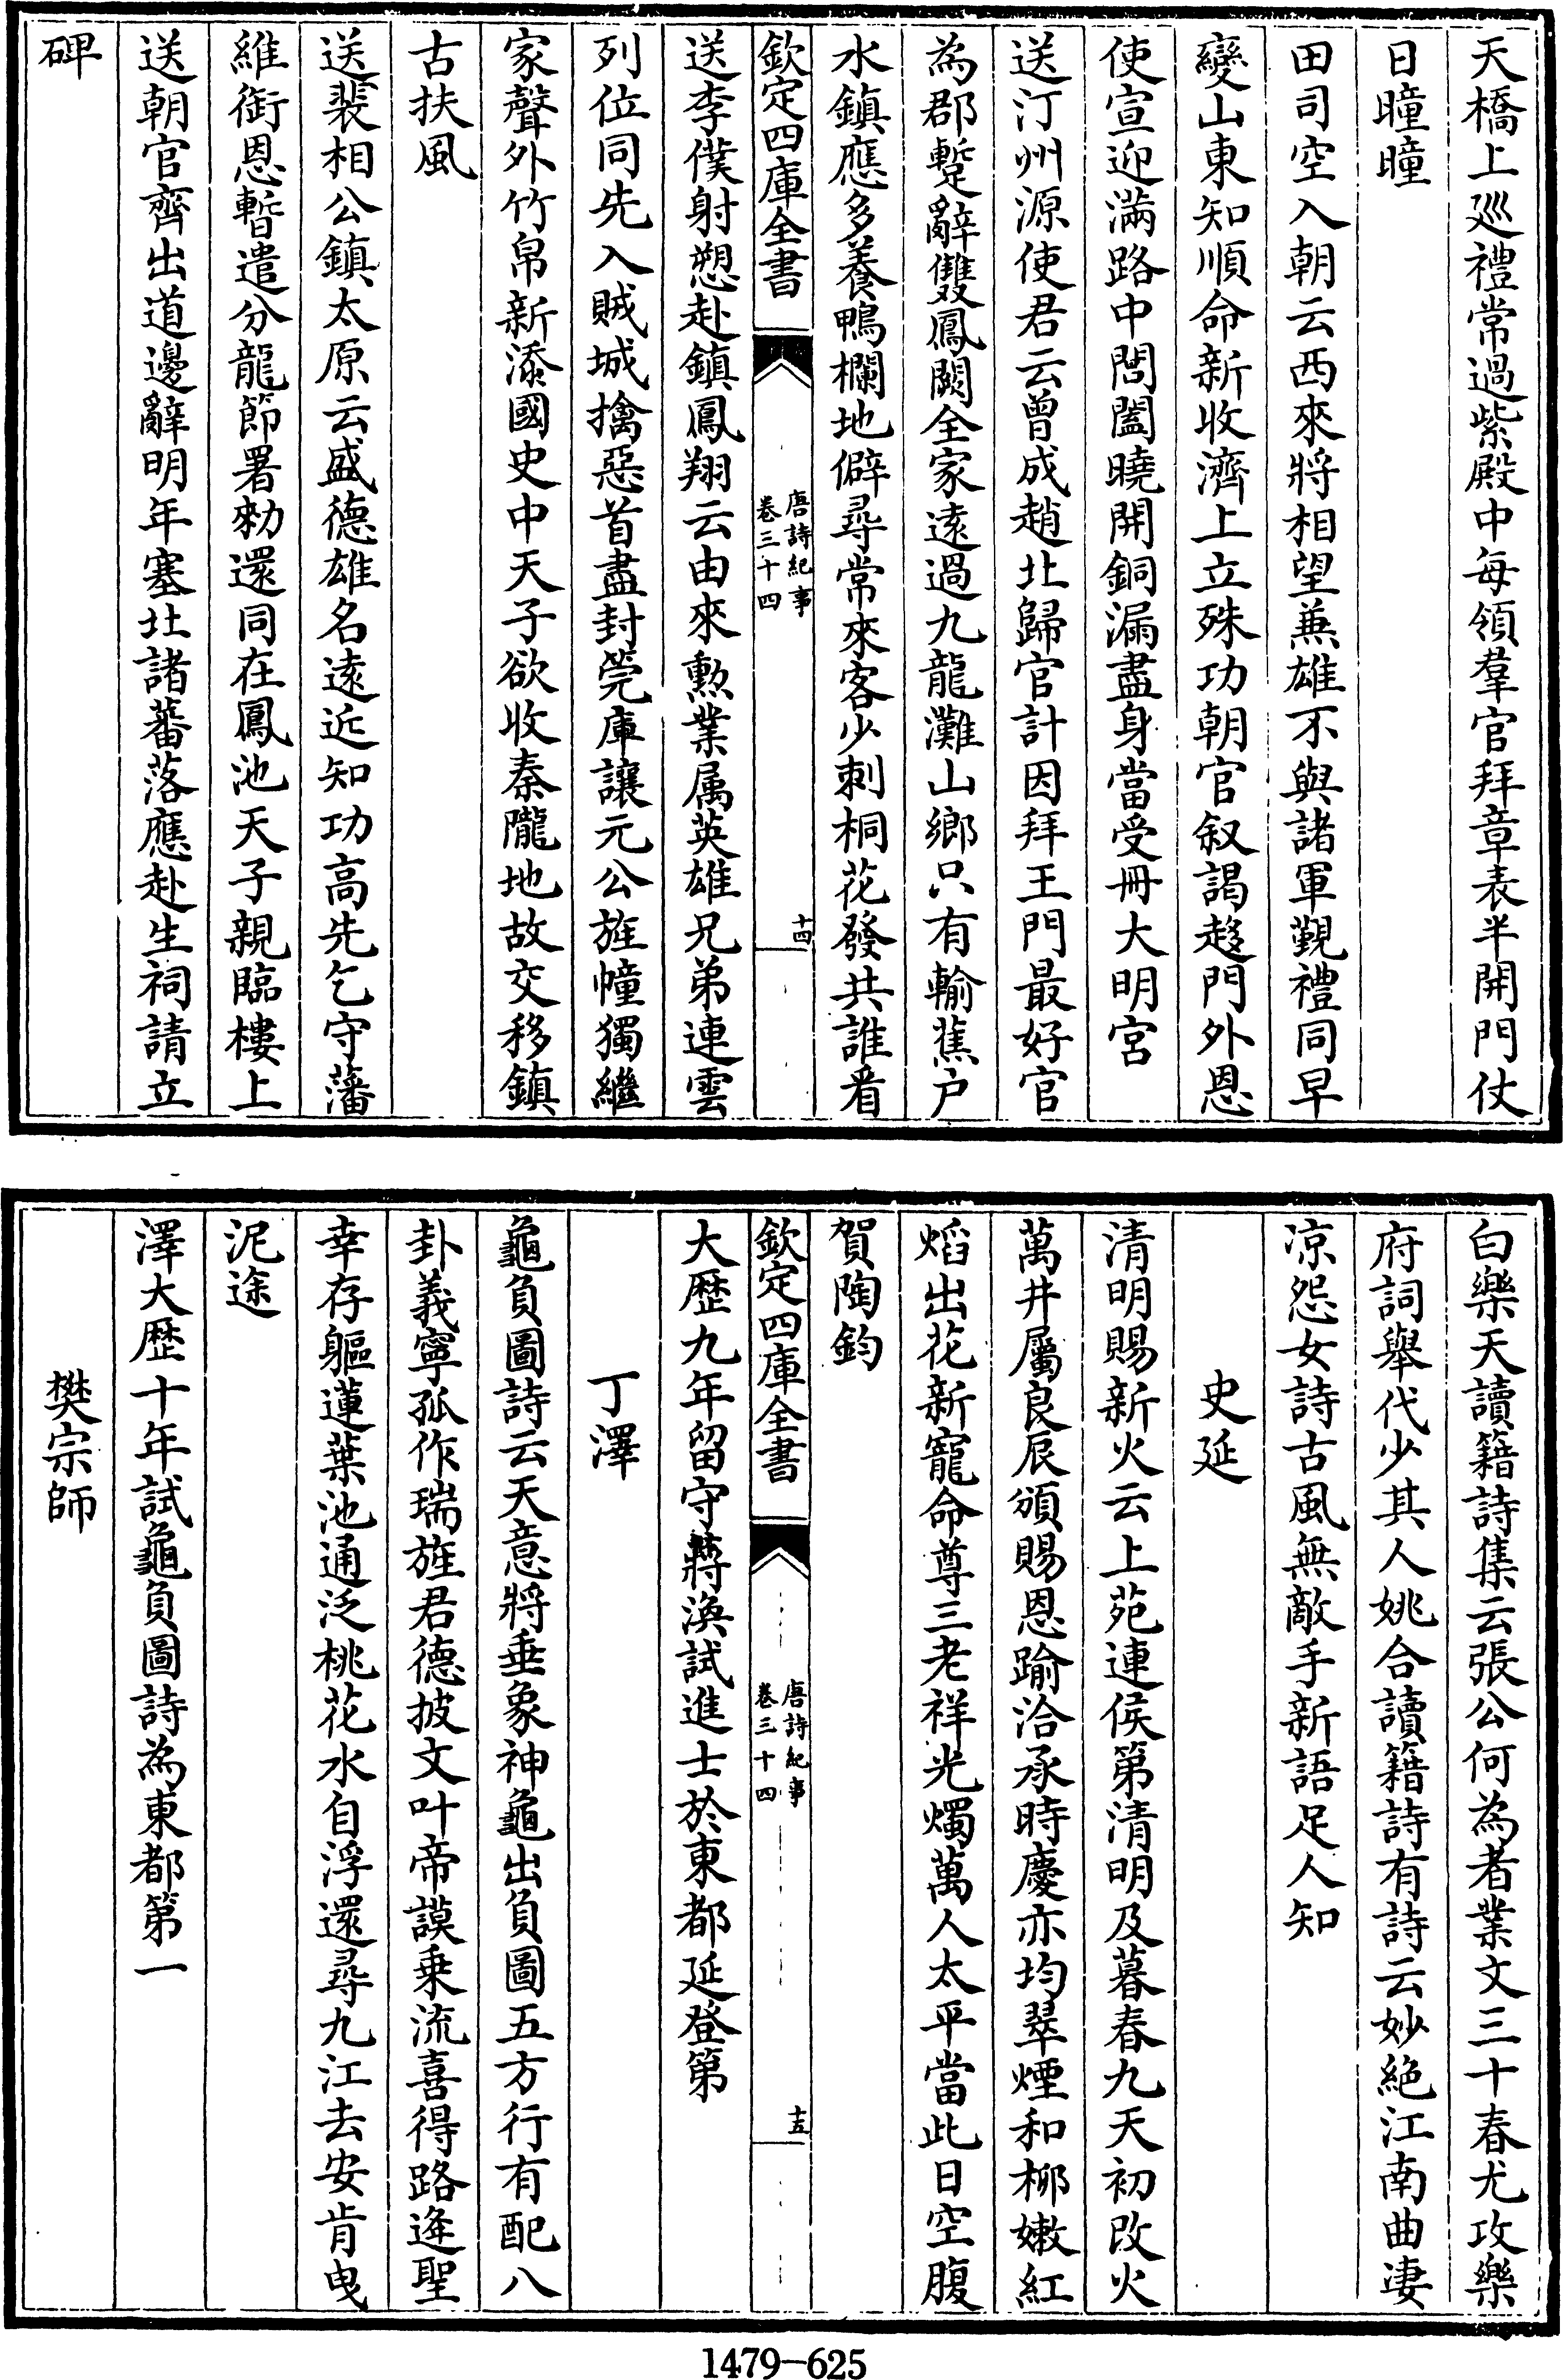 天橋上巡禮常過紫殿中每領羣官拜章表半開門仗
日曈曈
田司空入朝云西來將相望兼雄不與諸軍覲禮同早
變山東知順命新收濟上立殊功朝官叙謁趍門外恩
使宣迎滿路中閶闔曉開銅漏盡身當受冊大明宮
送汀州源使君云曾成趙北歸官計因拜王門最好官
為郡蹔辭雙鳳闕全家遠過九龍灘山鄉只有輸蕉户
水鎮應多養鴨欄地僻尋常來客少刺桐花發共誰看
欽定四庫全書
唐詩紀事
卷三十四
十四
送李僕射愬赴鎮鳳翔云由來勲業属英雄兄弟連雲
列位同先入賊城擒惡首盡封筦庫讓元公旌幢獨繼
家聲外竹帛新添國史中天子欲收秦隴地故交移鎮
古扶風
送裴相公鎮太原云盛德雄名遠近知功高先乞守藩
維銜恩暫遣分龍節署勑還同在鳳池天子親臨樓上
送朝官齊出道邊辭明年塞北諸蕃落應赴生祠請立
碑
白樂天讀籍詩集云張公何為者業文三十春尤攻樂
府詞舉代少其人姚合讀籍詩有詩云妙絶江南曲凄
凉怨女詩古風無敵手新語足人知
史延
清明賜新火云上苑連侯第清明及暮春九天初改火
萬井屬良辰頒賜恩踰洽承時慶亦均翠煙和柳嫩紅
熖出花新寵命尊三老祥光燭萬人太平當此日空腹
賀陶鈞
欽定四庫全書
唐詩紀事
卷三十四
十五
大歷九年留守蔣渙試進士於東都延登第
丁澤
龜負圖詩云天意將垂象神龜出負圖五方行有配八
卦義寧孤作瑞旌君德披文叶帝謨乗流喜得路逄聖
幸存軀蓮葉池通泛桃花水自浮還尋九江去安肯曳
泥途
澤大歷十年試龜負圖詩為東都第一
樊宗師
1479-625